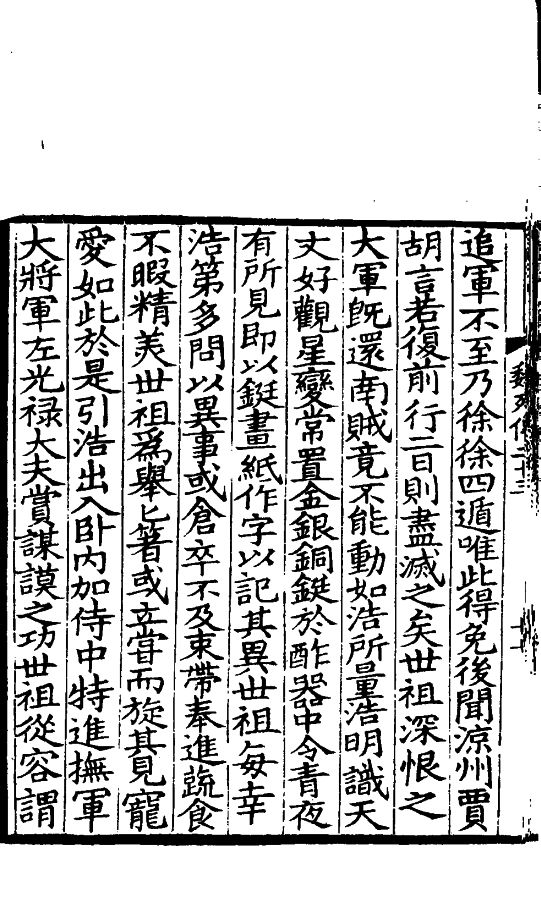 追軍不至乃徐徐四遁唯此得免後聞涼州賈
胡言若復前行二日則盡滅之矣世祖深恨之
大軍旣還南賊竟不能動如浩所量浩明識天
文好觀星變常置金銀銅鋌於酢器中令青夜
有所見即以鋌畫紙作字以記其異世祖每幸
浩第多問以異事或倉卒不及束帶奉進蔬食
不暇精美世祖爲舉匕箸或立嘗而旋其見寵
愛如此於是引浩出入卧内加侍中特進撫軍
大將軍左光禄大夫賞謀謨之功世祖從容謂
魏列傳二十三
十一